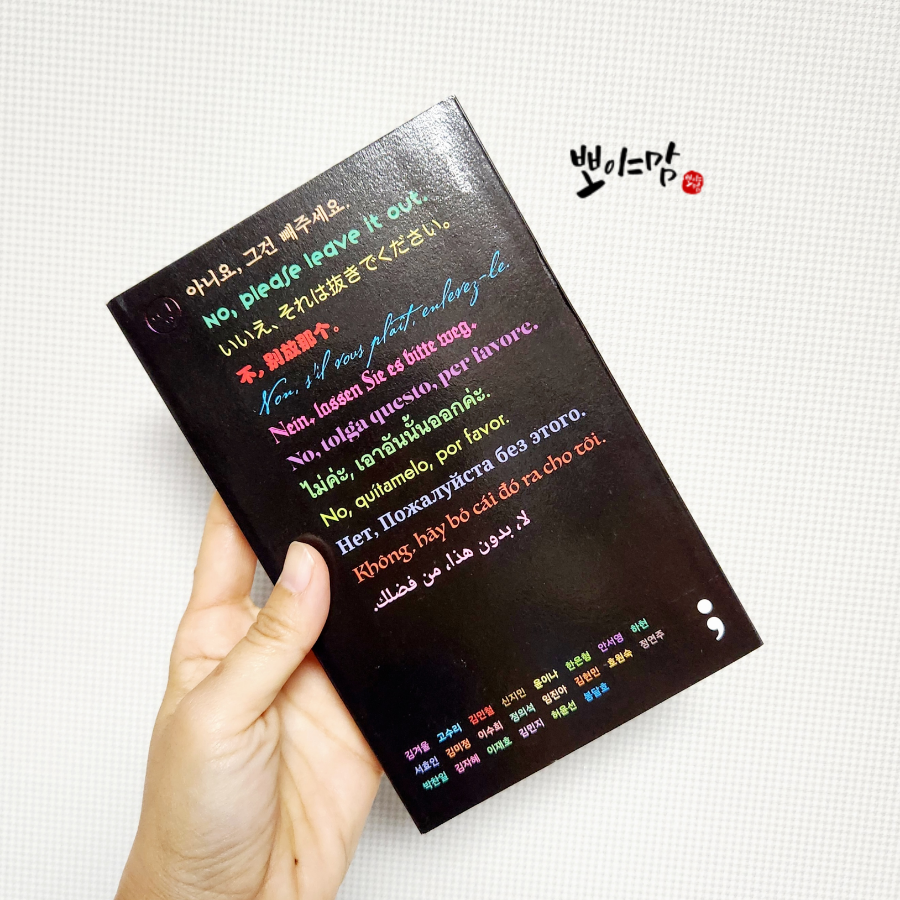 뽀이는맘
아니요, 그건 빼주세요.
No, please leave it out.
いいえ、それは抜きでください。
不, 别放那个。
Non, s'il vous plaît, enlevez-le.
Nein, lassen Sie es bitte weg.
No, tolga questo, per favore.
ไม่ค่ะ, เอาอันนั้นออกค่ะ.
No, quítamelo, por favor.
Нет, Пожалуйста без этого.
Không. hãy bỏ cái đó ra cho tôi.
لا، بدون هذا، من فضلك.
;
김겨울 고수리 김민철 신지민 윤이나 한은형 안서영 하현
서효인 김미정 이수희 정의석 임진아 김현민 호원숙 정연주
박찬일 김자혜 이재호 김민지 허윤선 봉달호